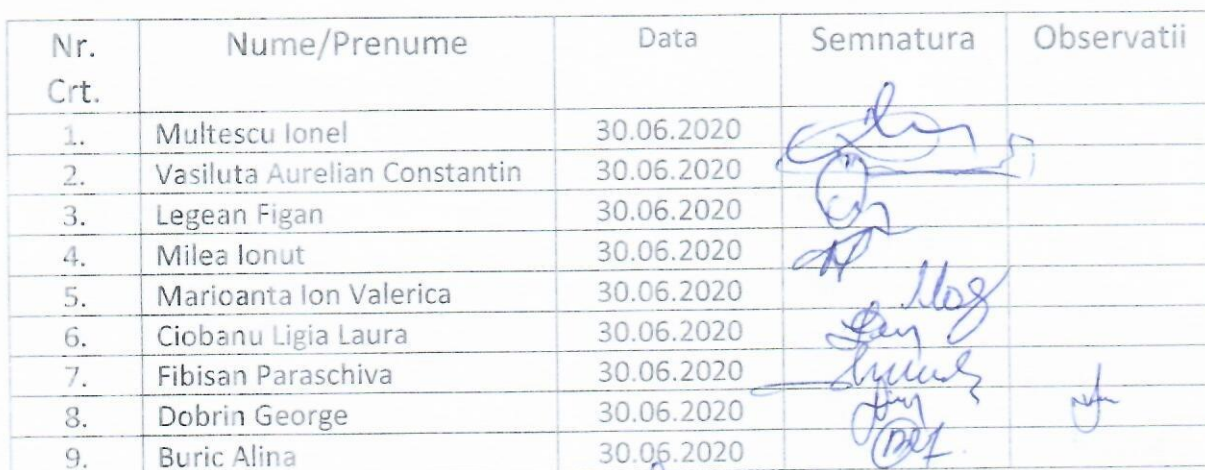 Nr. Crt. Nume/Prenume Data Semnatura Observatii
1. Multescu Ionel 30.06.2020
2. Vasiluta Aurelian Constantin 30.06.2020
3. Legean Figan 30.06.2020
4. Milea Ionut 30.06.2020
5. Marioanta Ion Valerica 30.06.2020
6. Ciobanu Ligia Laura 30.06.2020
7. Fibisan Paraschiva 30.06.2020
8. Dobrin George 30.06.2020
9. Buric Alina 30.06.2020